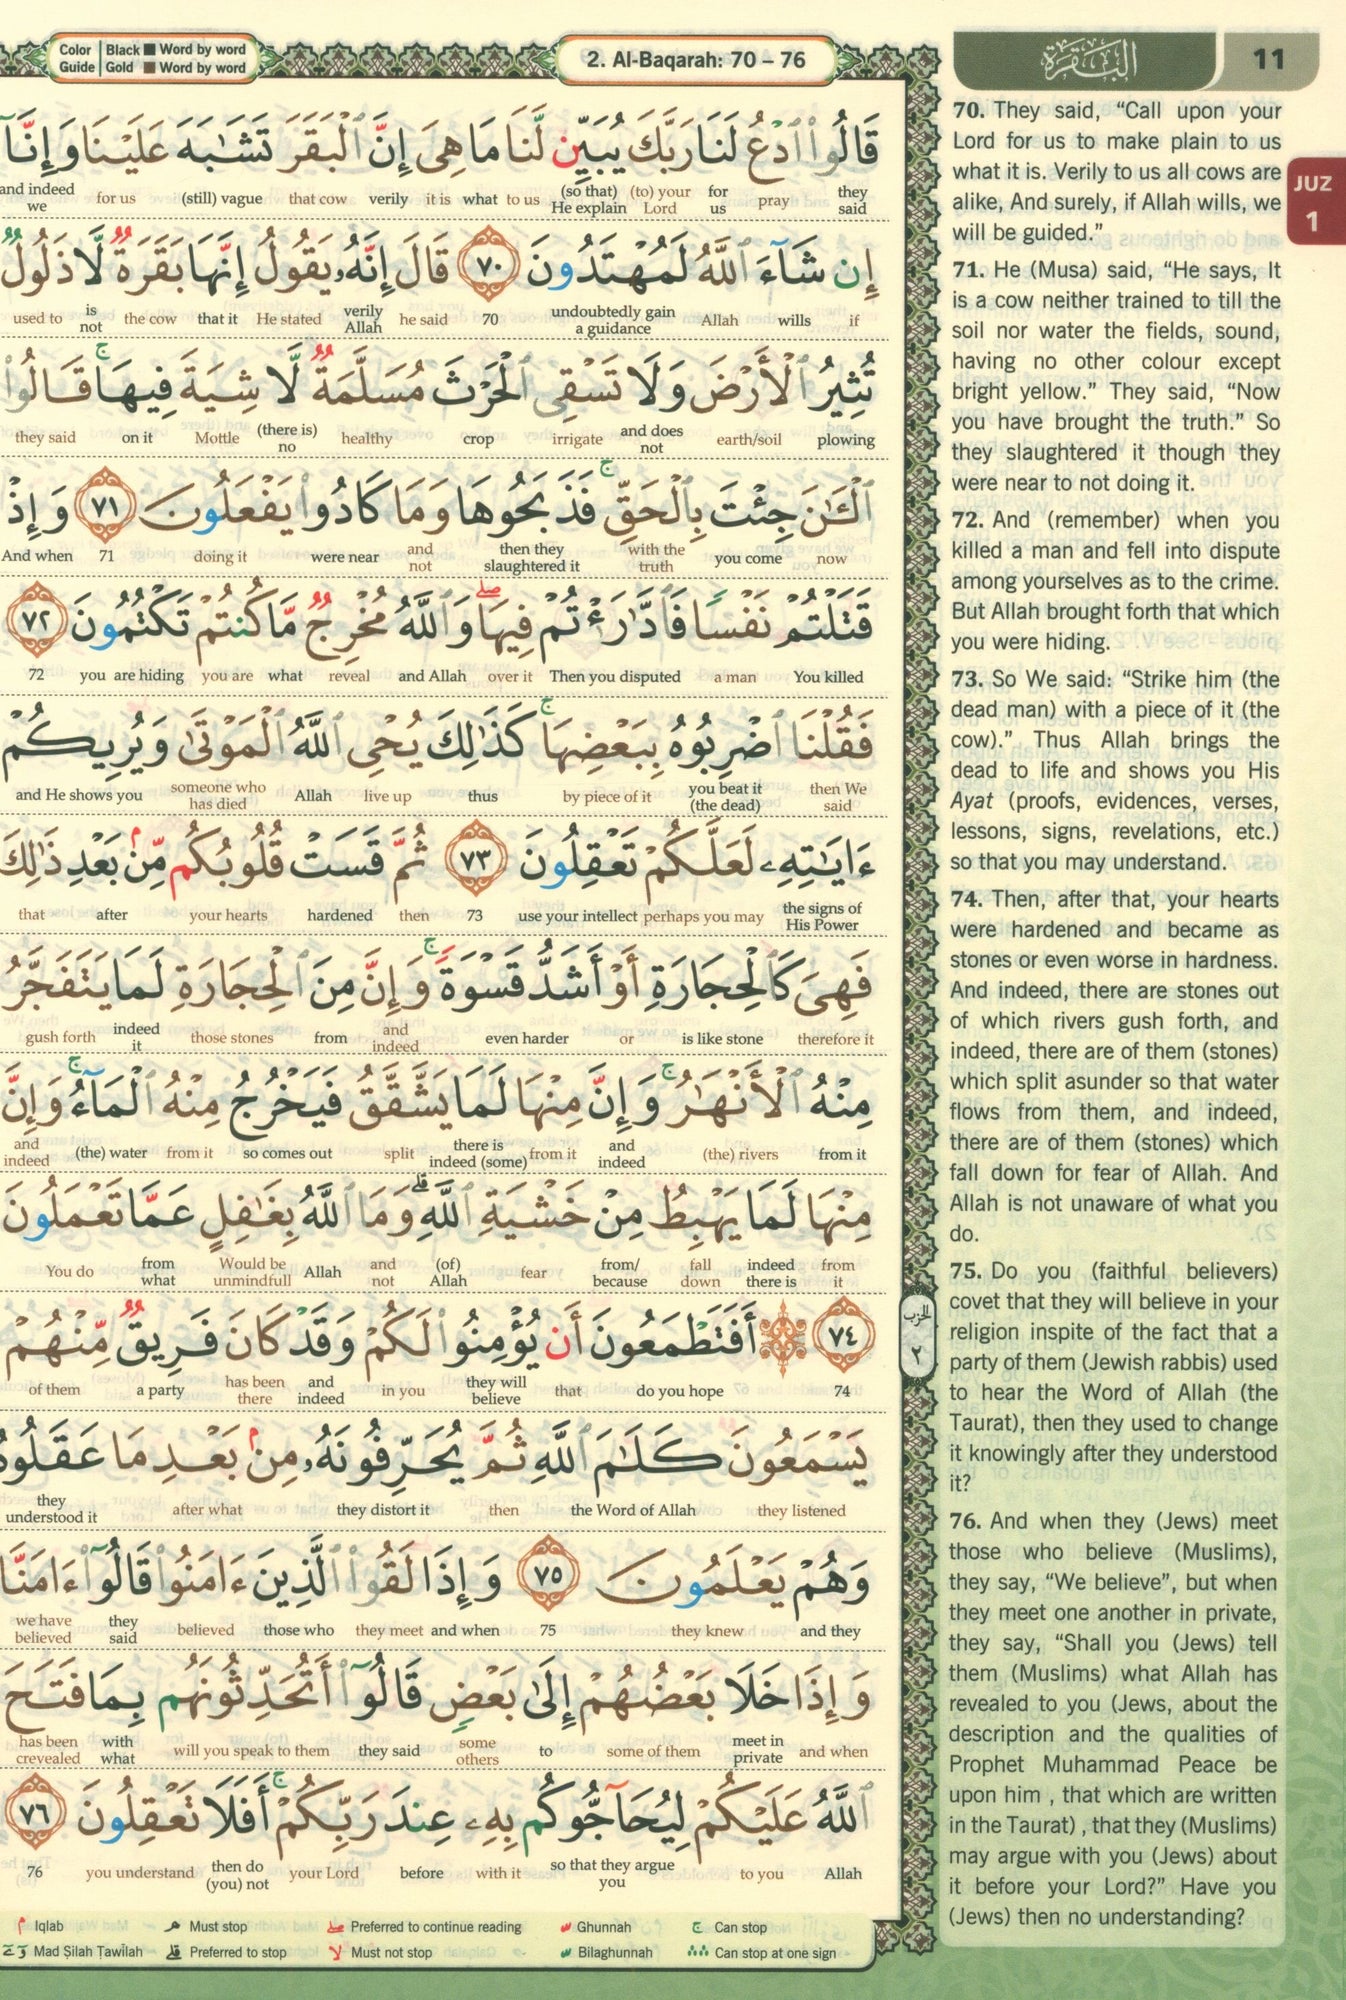 Color Guide | Black ■ Word by word
Gold ■ Word by word
2. Al-Baqarah: 70 – 76
البقرة
11
JUZ
1
قَالُوا۟ ٱدْعُ لَنَا رَبَّكَ يُبَيِّن لَّنَا مَا هِىَ إِنَّ ٱلْبَقَرَ تَشَـٰبَهَ عَلَيْنَا وَإِنَّآ
they said
pray
for us
(to) your Lord
(so that) He explain
to us
what
it is
verily
that cow
(still) vague
for us
and indeed we
إِن شَآءَ ٱللَّهُ لَمُهْتَدُونَ ٧٠ قَالَ إِنَّهُۥ يَقُولُ إِنَّهَا بَقَرَةٌ لَّا ذَلُولٌ
if
wills
Allah
undoubtedly gain a guidance
70
he said
verily Allah
He stated
that it
the cow
is not
used to
تُثِيرُ ٱلْأَرْضَ وَلَا تَسْقِى ٱلْحَرْثَ مُسَلَّمَةٌ لَّا شِيَةَ فِيهَا ۚ قَالُوا۟
plowing
earth/soil
and does not
irrigate
crop
healthy
(there is) no
Mottle
on it
they said
ٱلْـَٔـٰنَ جِئْتَ بِٱلْحَقِّ ۚ فَذَبَحُوهَا وَمَا كَادُوا۟ يَفْعَلُونَ ٧١ وَإِذْ
now
you come
with the truth
then they slaughtered it
and not
were near
doing it
71
And when
قَتَلْتُمْ نَفْسًا فَٱدَّٰرَْٰٔتُمْ فِيهَا ۖ وَٱللَّهُ مُخْرِجٌ مَّا كُنتُمْ تَكْتُمُونَ ٧٢
You killed
a man
Then you disputed
over it
and Allah
reveal
what
you are
you are hiding
72
فَقُلْنَا ٱضْرِبُوهُ بِبَعْضِهَا ۚ كَذَٰلِكَ يُحْىِ ٱللَّهُ ٱلْمَوْتَىٰ وَيُرِيكُمْ
then We said
you beat it (the dead)
by piece of it
thus
live up
Allah
someone who has died
and He shows you
ءَايَـٰتِهِۦ لَعَلَّكُمْ تَعْقِلُونَ ٧٣ ثُمَّ قَسَتْ قُلُوبُكُم مِّنۢ بَعْدِ ذَٰلِكَ
the signs of His Power
perhaps you may
use your intellect
73
then
hardened
your hearts
after
that
فَهِىَ كَٱلْحِجَارَةِ أَوْ أَشَدُّ قَسْوَةً ۚ وَإِنَّ مِنَ ٱلْحِجَارَةِ لَمَا يَتَفَجَّرُ
therefore it
is like stone
or
even harder
and indeed
from
those stones
indeed it
gush forth
مِنْهُ ٱلْأَنْهَـٰرُ ۚ وَإِنَّ مِنْهَا لَمَا يَشَّقَّقُ فَيَخْرُجُ مِنْهُ ٱلْمَآءُ ۚ وَإِنَّ
from it
(the) rivers
and indeed
from it
there is indeed (some)
split
so comes out
from it
(the) water
and indeed
مِنْهَا لَمَا يَهْبِطُ مِنْ خَشْيَةِ ٱللَّهِ ۗ وَمَا ٱللَّهُ بِغَـٰفِلٍ عَمَّا تَعْمَلُونَ
from it
indeed there is
fall down
from/ because
fear
(of) Allah
and not
Allah
Would be unmindfull
from what
You do
٧٤ ۞ أَفَتَطْمَعُونَ أَن يُؤْمِنُوا۟ لَكُمْ وَقَدْ كَانَ فَرِيقٌ مِّنْهُمْ
74
do you hope
that
they will believe
in you
and indeed
has been there
a party
of them
الحزب ٢
يَسْمَعُونَ كَلَـٰمَ ٱللَّهِ ثُمَّ يُحَرِّفُونَهُۥ مِنۢ بَعْدِ مَا عَقَلُوهُ
they listened
the Word of Allah
then
they distort it
after what
they understood it
وَهُمْ يَعْلَمُونَ ٧٥ وَإِذَا لَقُوا۟ ٱلَّذِينَ ءَامَنُوا۟ قَالُوٓا۟ ءَامَنَّا
and they
they knew
75
and when
they meet
those who
believed
they said
we have believed
وَإِذَا خَلَا بَعْضُهُمْ إِلَىٰ بَعْضٍ قَالُوٓا۟ أَتُحَدِّثُونَهُم بِمَا فَتَحَ
and when
meet in private
some of them
to
some others
they said
will you speak to them
with what
has been crevealed
ٱللَّهُ عَلَيْكُمْ لِيُحَآجُّوكُم بِهِۦ عِندَ رَبِّكُمْ ۚ أَفَلَا تَعْقِلُونَ ٧٦
Allah
to you
so that they argue you
with it
before
your Lord
then do (you) not
you understand
76
Iqlab
Must stop
Preferred to continue reading
Ghunnah
Can stop
Mad Ṣilah Ṭawīlah
Preferred to stop
Must not stop
Bilaghunnah
Can stop at one sign
70. They said, “Call upon your
Lord for us to make plain to us
what it is. Verily to us all cows are
alike, And surely, if Allah wills, we
will be guided.”
71. He (Musa) said, “He says, It
is a cow neither trained to till the
soil nor water the fields, sound,
having no other colour except
bright yellow.” They said, “Now
you have brought the truth.” So
they slaughtered it though they
were near to not doing it.
72. And (remember) when you
killed a man and fell into dispute
among yourselves as to the crime.
But Allah brought forth that which
you were hiding.
73. So We said: “Strike him (the
dead man) with a piece of it (the
cow).” Thus Allah brings the
dead to life and shows you His
Ayat (proofs, evidences, verses,
lessons, signs, revelations, etc.)
so that you may understand.
74. Then, after that, your hearts
were hardened and became as
stones or even worse in hardness.
And indeed, there are stones out
of which rivers gush forth, and
indeed, there are of them (stones)
which split asunder so that water
flows from them, and indeed,
there are of them (stones) which
fall down for fear of Allah. And
Allah is not unaware of what you
do.
75. Do you (faithful believers)
covet that they will believe in your
religion inspite of the fact that a
party of them (Jewish rabbis) used
to hear the Word of Allah (the
Taurat), then they used to change
it knowingly after they understood
it?
76. And when they (Jews) meet
those who believe (Muslims),
they say, “We believe”, but when
they meet one another in private,
they say, “Shall you (Jews) tell
them (Muslims) what Allah has
revealed to you (Jews, about the
description and the qualities of
Prophet Muhammad Peace be
upon him , that which are written
in the Taurat) , that they (Muslims)
may argue with you (Jews) about
it before your Lord?” Have you
(Jews) then no understanding?